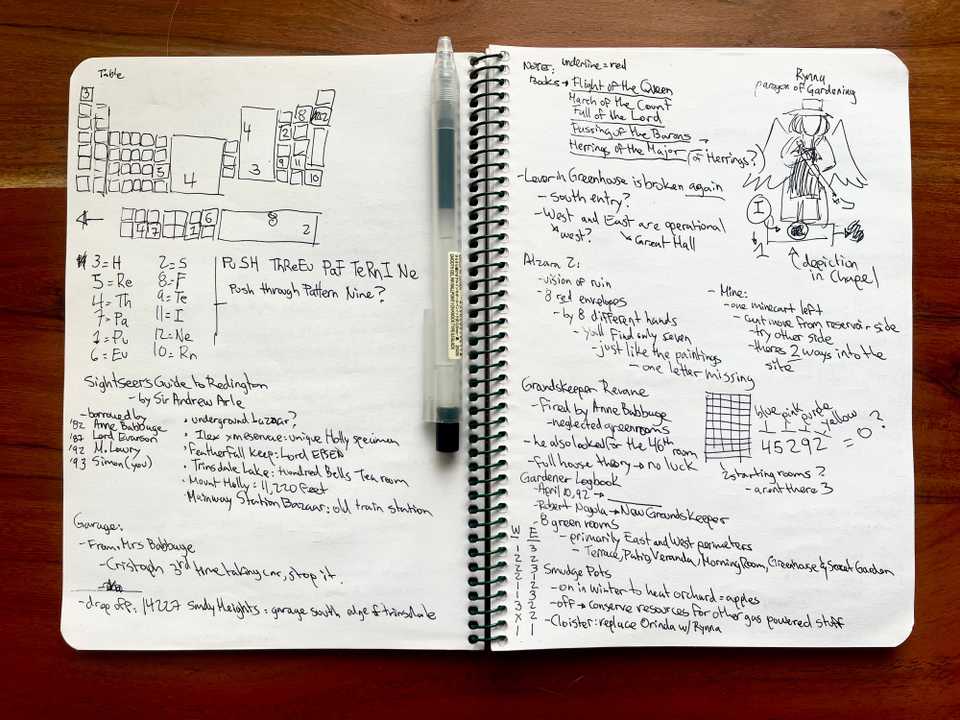 Table
3
8
2
4
3
9
11
10
5
4
6
4
7
1
8
2
3=H 2=S
5=Re 8=F
4=Th 9=Te
7=Pa 11=I
1=Pu 12=Ne
6=Eu 10=Rn
PuSH ThReEu PaF TeRnI Ne
Push through Pattern Nine?
Sightseers Guide to Redington
- by Sir Andrew Arle
- borrowed by
'82 Anne Babbage
'87 Lord Evarson
'92 M. Lowry
'93 Simon (you)
• underground
• Ilex : unique Holly specimen
• Featherfall Keep: Lord
• Trinsdale Lake: Hundred Bells Tea room
• Mount Holly: 11,220 feet
• Mainway Station Bazaar: old train station
Garage:
- From Mrs Babbage
- Cristoph 3rd time taking car, stop it.
- drop off: 14227 Sandy Heights: garage south edge of
Notes: underline = red
Books → Flight of the Queen
March of the Count
Fall of the Lord
Fussing of the Barons
Herrings of the Major (of Herrings?)
Rynna
paragon of Gardening
I
1
depiction
in Chapel
- Lever in Greenhouse is broken again
- South entry?
- West and East are operational
west? Great Hall
Alzara 2:
- vision of ruin
- 8 red envelopes
- by 8 different hands
- you'll find only seven
- just like the paintings
- one letter missing
- Mine:
- one minecart left
- cant move from reservoir side
- try other side
- theres 2 ways into the
site
Grondskeeper Revane
- Fired by Anne Babbage
- neglected greenrooms
- he also looked for the 46th
room
- full house theory → no luck
blue pink purple yellow
45292 = 0 ?
2 starting rooms?
- arent there 3
Gardener Logbook
- April 10, 92 →
- Robert Nagola → New Groundskeeper
- 8 green rooms
- primarily East and West perimeters
- Terrace, Patio, Veranda, Morning Room, Greenhouse & Secret Garden
W E
1 3
2 2
2 3
2 1
1 2
1 3
3 2
x 2
1 1
Smudge Pots
- on in winter to heat orchard = apples
- off → conserve resources for other gas powered stuff
- Cloister: replace Orinda w/ Rynna